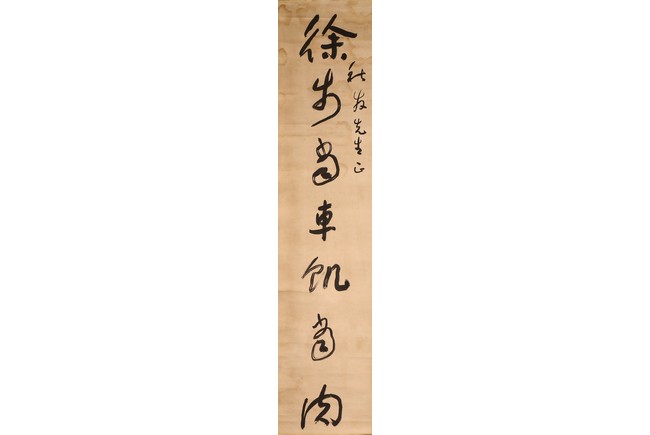 先生正
徐步當車飢當肉